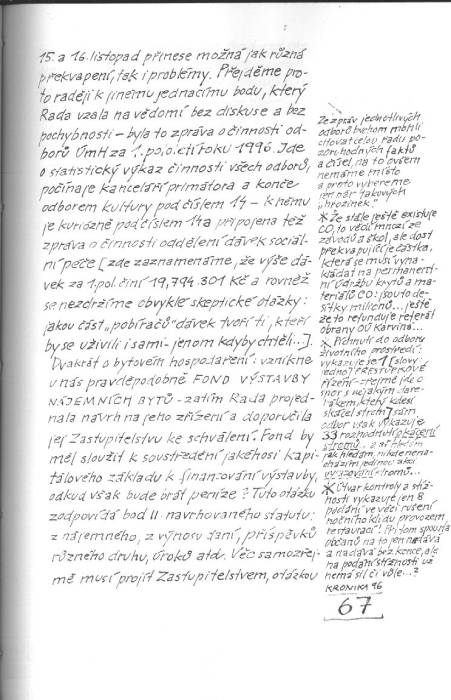 15. a 16. listopad přinese možná jak různá
překvapení, tak i problémy. Přejděme pro-
to raději k jinému jednacímu bodu, který
Rada vzala na vědomí bez diskuse a bez
pochybností – byla to zpráva o činnosti od-
borů ÚmH za 1. pololetí roku 1996. Jde
o statistický výkaz činnosti všech odborů,
počínaje kanceláří primátora a konče
odborem kultury pod číslem 14 – k němu
je kuriózně pod číslem 14a připojena též
zpráva o činnosti oddělení dávek sociál-
ní péče [zde zaznamenáme, že výše dá-
vek za 1. pol. činí 19,794.301 Kč a rovněž
se nezdržíme obvyklé skeptické otázky:
jakou část „pobíračů" dávek tvoří ti, kteří
by se uživili i sami – jenom kdyby chtěli...].
Dvakrát o bytovém hospodaření: vznikne
u nás pravděpodobně FOND VÝSTAVBY
NÁJEMNÍCH BYTŮ – zatím Rada projed-
nala návrh na jeho zřízení a doporučila
jej Zastupitelstvu ke schválení. Fond by
měl sloužit k soustředění jakéhosi kapi-
tálového základu k financování výstavby,
odkud však bude brát peníze? Tuto otázku
zodpovídá bod II. navrhovaného statutu:
z nájemného, z výnosu daní, příspěvků
různého druhu, úroků atd. Věc samozřej-
mě musí projít Zastupitelstvem, otázkou
Ze zpráv jednotlivých
odborů bychom mohli
citovat celou řadu po-
zoruhodných faktů
a čísel, na to ovšem
nemáme místo
a proto vybereme
jen pár takových
„hrozinek."
* Že stále ještě existuje
CO, to vědí mnozí ze
závodů a škol, ale dost
překvapující je částka,
která se musí vyna-
kládat na permanent-
ní údržbu krytů a ma-
teriálů CO: jsou to de-
sítky milionů... ještě
že to refunduje referát
obrany OÚ Karviná...
* Přičinutí do odboru
životního prostředí:
vykazuje se 1 [slovy
jedno] PŘESTUPKOVÉ
ŘÍZENÍ – zřejmě jde o
spor s nějakým dare-
bákem, který kdesi
skácel strom] sám
odbor však vykazuje
33 rozhodnutí o kácení
stromů... a ať hledám
jak hledám, nikde nena-
cházím jedinou akci
vysazování stromů...
* Útvar kontroly a stíž-
ností vykazuje jen 8
podání ve věci rušení
nočního klidu provozem
restaurací! Přitom spousta
občanů na to jen nadává
a nadává bez konce, ale
na podání stížnosti už
nemá sil či vůle...?
KRONIKA 96
67